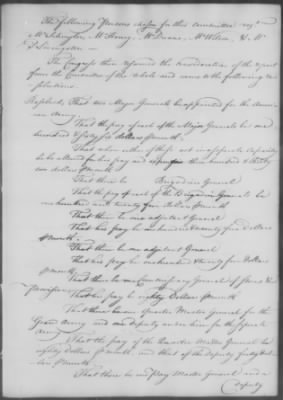 The following Persons chosen for this committee
Mr Schuyler, Mr
The Congress then resumed the consideration of the report
from the Committee of the whole and came to the following re
solutions
Resolved, That two Major Generals be appointed for the Ameri
can Army
That the pay of each of the Major Generals be one
hundred & sixty six dollars month
That when either of these act in a separate capacity
to be allowed for his pay and expences three hundred & thirty
two dollars month
That there be Brigadier General
That the pay of each of the Brigadier Generals be
one hundred and twenty five dollars month
That there be one adjutant General
That his pay be one hundred & twenty five dollars
month
That there be one adjutant General
That his pay be one hundred & twenty five dollars
month
That there be one Commissary General of Stores &
Provisions
That his pay be eighty dollars month
That there be one Quarter Master General for the
Grand Army and one deputy under him for the separate
army
That the pay of the Quarter Master General be
eighty dollars month, and that of the deputy forty dol
lars month
That there be one Pay Master General and a
deputy